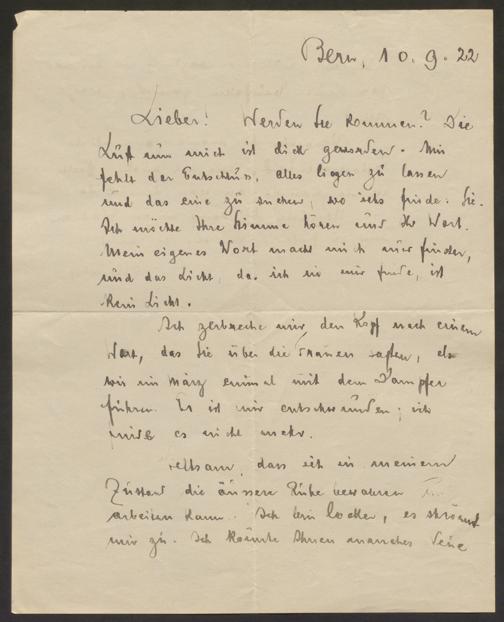 Bern, 10.9.22
Lieber! Werden Sie kommen? Die
Luft um mich ist dick geworden. Mir
fehlt der Entschluss, alles liegen zu lassen
und das eine zu suchen, wo ichs finde: Sie.
Ich möchte Ihre Stimme hören und Ihr Wort.
Mein eigenes Wort macht mich nur,
und das Licht, das ich in mir finde, ist
kein Licht.
Ich zerbreche mir den Kopf nach einem
Wort, das Sie über die Frauen sagten, als
wir im März einmal mit dem Dampfer
fuhren. Es ist mir entschwunden; ich
es nicht mehr.
Seltsam, dass ich in meinem
Zustand die äussere Ruhe bewahren
arbeiten kann. Ich bin locker, es strömt
mir zu. Ich könnte Ihnen manches